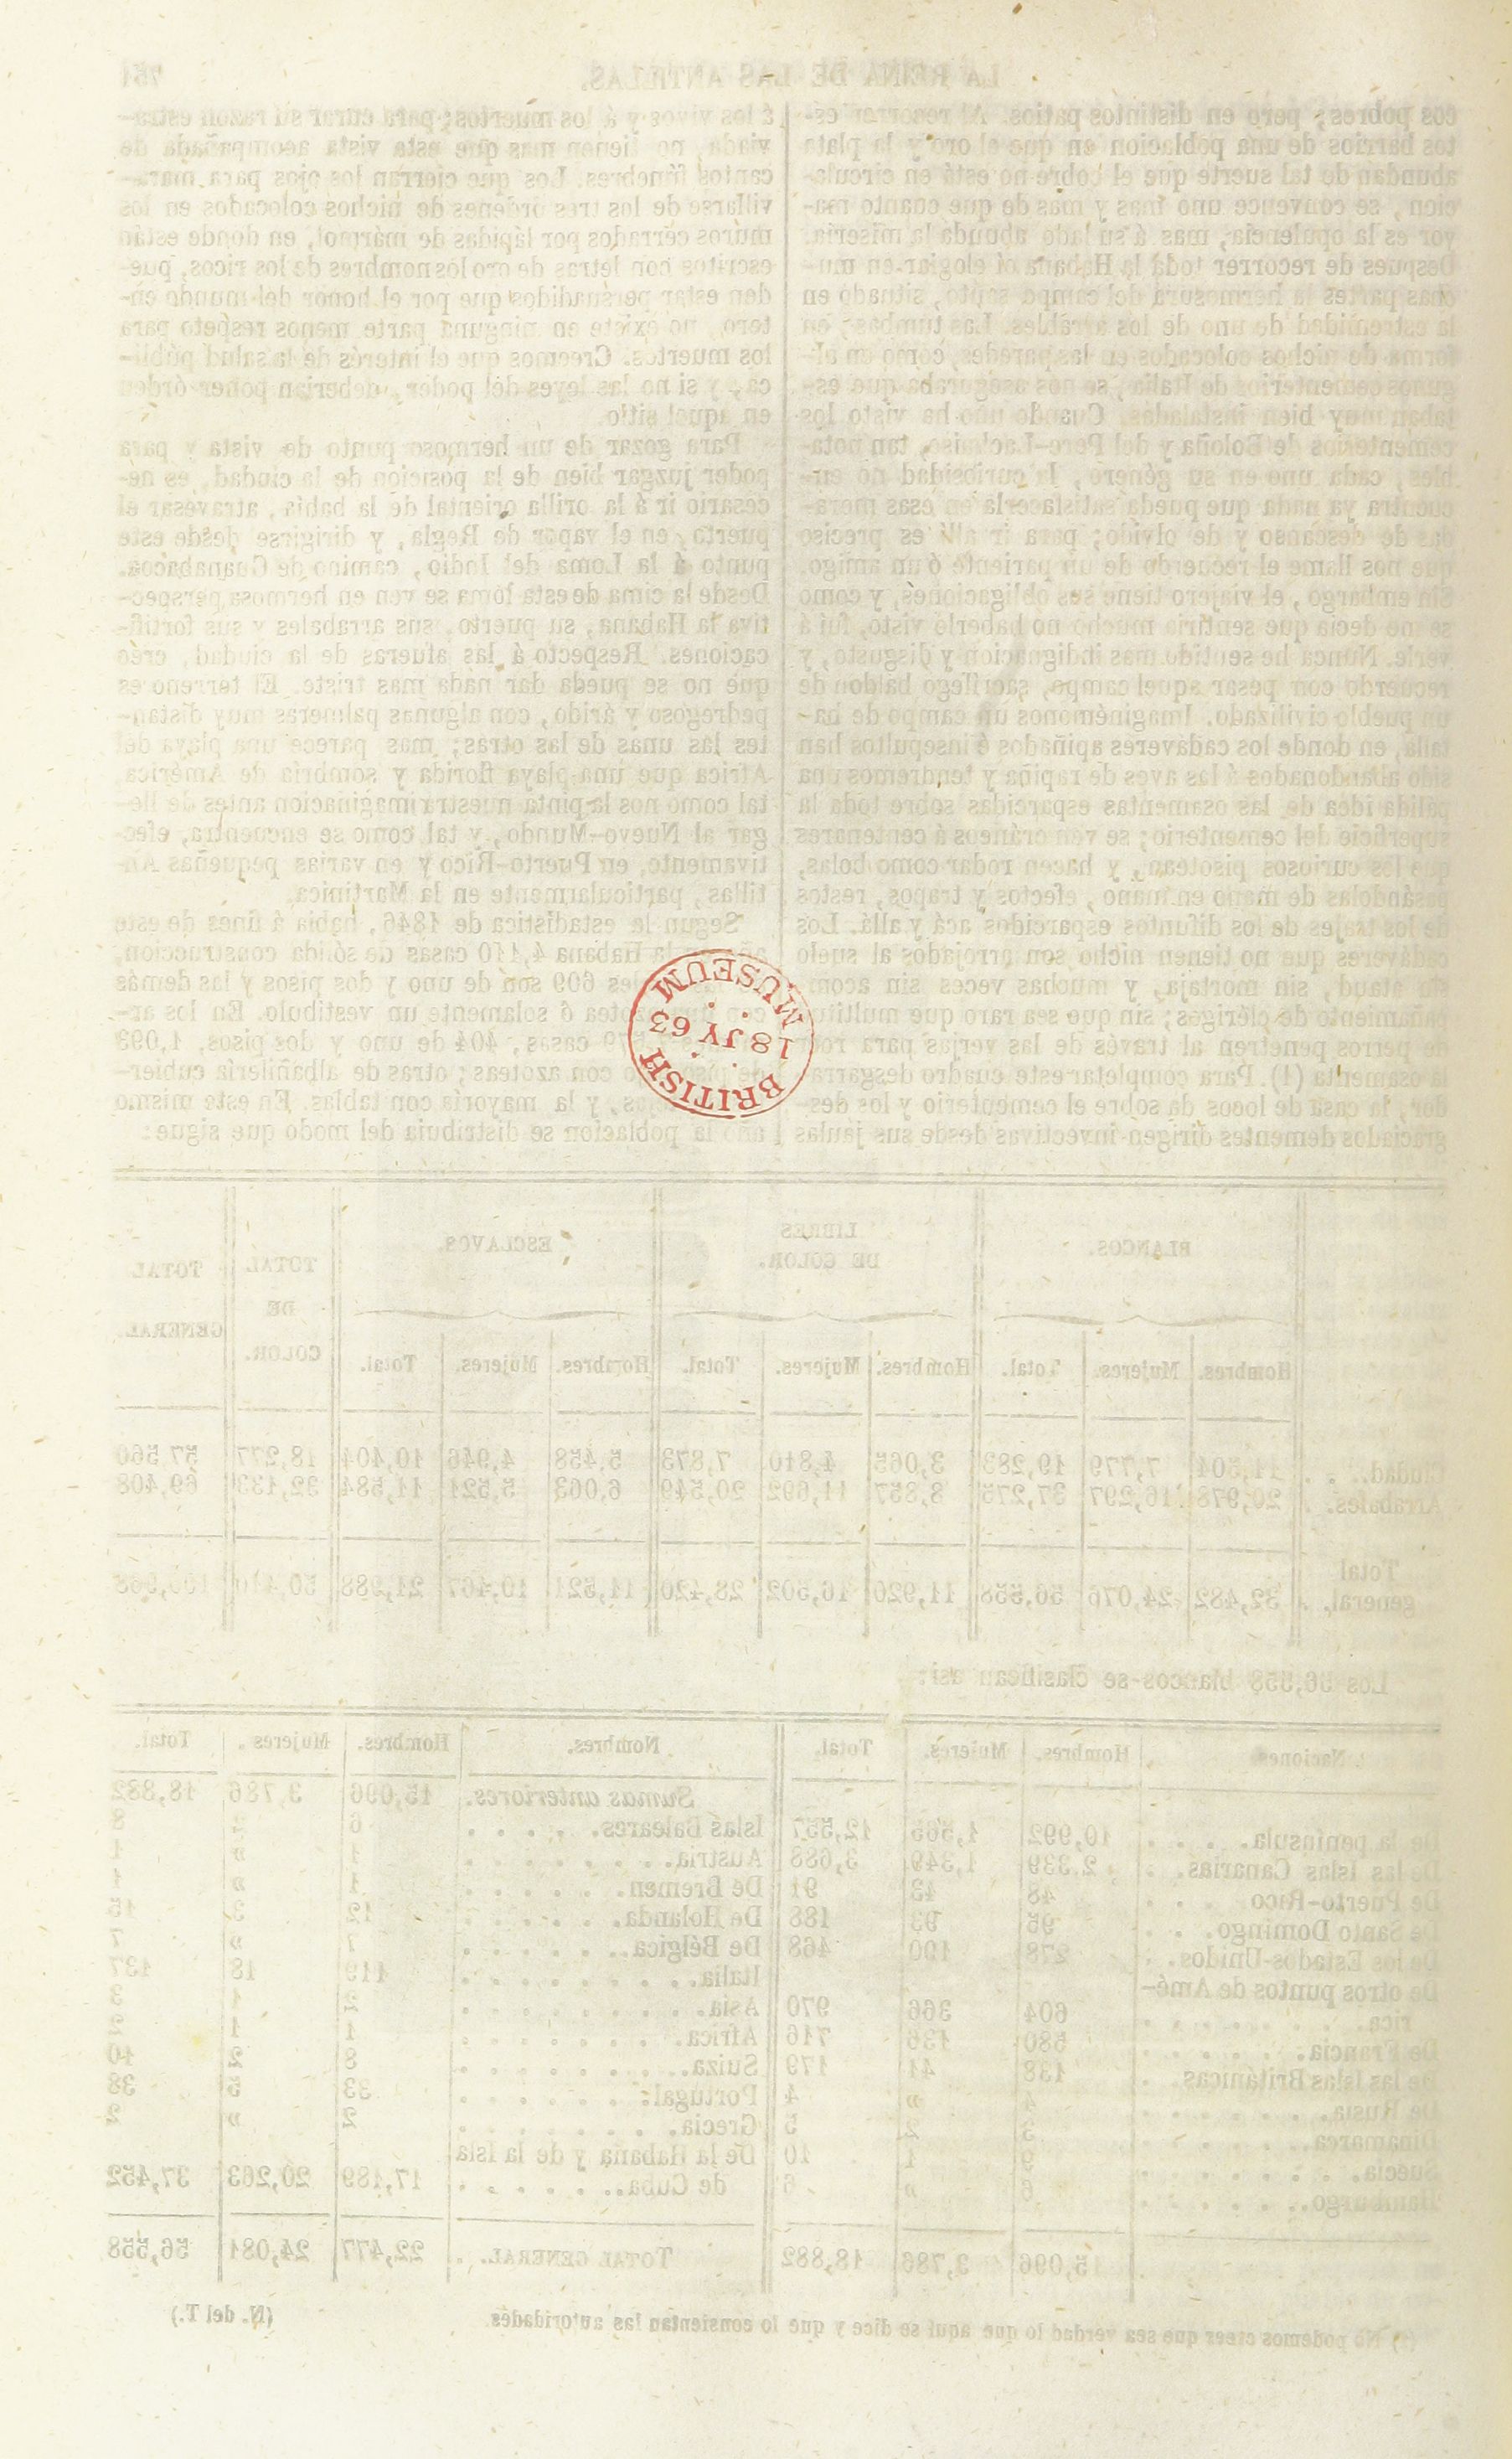 LA REINA DE LAS ANTILLAS.
751
cos pobres; pero en distintos patios. Al recorrer es-
tos barrios de una poblacion en que el oro y la plata
abundan de tal suerte que el cobre no está en circula-
cion, se convence uno mas y mas de que cuanto ma-
yor es la opulencia, mas á su lado abunda la miseria.
Despues de recorrer toda la Habana oí elogiar en mu-
chas partes la hermosura del campo santo, situado en
la estremidad de uno de los arrabales. Las tumbas, en
forma de nichos colocados en las paredes, como en al-
gunos cementerios de Italia, se nos aseguraba que es-
taban muy bien instaladas. Cuando uno ha visto los
cementerios de Boloña y del Pere-Lachaise, tan nota-
bles, cada uno en su género, la curiosidad no en-
cuentra ya nada que pueda satisfacerla en esas mora-
das de descanso y de olvido; para ir allí es preciso
que nos llame el recuerdo de un pariente ó un amigo.
Sin embargo, el viajero tiene sus obligaciones, y como
se me decia que sentiria mucho no haberlo visto, fuí á
verle. Nunca he sentido mas indignacion y disgusto, y
recuerdo con pesar aquel campo, sacrílego baldon de
un pueblo civilizado. Imaginémonos un campo de ba-
talla, en donde los cadáveres apiñados é insepultos han
sido abandonados á las aves de rapiña y tendremos una
pálida idea de las osamentas esparcidas sobre toda la
superficie del cementerio; se ven cráneos á centenares
que los curiosos pisotean, y hacen rodar como bolas,
pasándolas de mano en mano, efectos y trapos, restos
de los trajes de los difuntos esparcidos acá y allá. Los
cadáveres que no tienen nicho son arrojados al suelo
sin ataud, sin mortaja, y muchas veces sin acom-
pañamiento de clérigos; sin que sea raro que multitud
de perros penetren al través de las verjas para roer
la osamenta (1). Para completar este cuadro desgarra-
dor, la casa de locos da sobre el cementerio y los des-
graciados dementes dirigen invectivas desde sus jaulas
á los vivos y á los muertos; para curar su razon estra-
viada, no tienen mas que esta vista acompañada de
cantos fúnebres. Los que cierran los ojos para mara-
villarse de los tres órdenes de nichos colocados en los
muros cerrados por lápidas de mármol, en donde están
escritos con letras de oro los nombres de los ricos, pue-
den estar persuadidos que por el honor del mundo en-
tero, no existe en ninguna parte menos respeto para
los muertos. Creemos que el interés de la salud públi-
ca, y si no las leyes del poder, deberian poner órden
en aquel sitio.
Para gozar de un hermoso punto de vista y para
poder juzgar bien de la posicion de la ciudad, es ne-
cesario ir á la orilla oriental de la bahía, atravesar el
puerto en el vapor de Regla, y dirigirse desde este
punto á la Loma del Indio, camino de Guanabacoa.
Desde la cima de esta loma se ven en hermosa perspec-
tiva la Habana, su puerto, sus arrabales y sus fortifi-
caciones. Respecto á las afueras de la ciudad, creo
que no se pueda dar nada mas triste. El terreno es
pedregoso y árido, con algunas palmeras muy distan-
tes las unas de las otras; mas parece una playa del
Africa que una playa florida y sombría de América,
tal como nos la pinta nuestra imaginacion antes de lle-
gar al Nuevo-Mundo, y tal como se encuentra, efec-
tivamente, en Puerto-Rico y en varias pequeñas An-
tillas, particularmente en la Martinica.
Segun la estadística de 1846, habia á fines de este
año la Habana 4,110 casas de sólida construccion,
609 son de uno y dos pisos y las demás
ó solamente un vestíbulo. En los ar-
casas, 404 de uno y dos pisos, 1,093
con azoteas; otras de albañilería cubier-
y la mayoría con tablas. En este mismo
año la poblacion se distribuia del modo que sigue:
BRITISH MUSEUM
18 JY 63
BLANCOS. LIBRES DE COLOR. ESCLAVOS. TOTAL DE COLOR. TOTAL GENERAL.
Hombres. Mujeres. Total. Hombres. Mujeres. Total. Hombres. Mujeres. Total.
Ciudad. 11,504 7,779 19,283 3,063 4,810 7,873 5,458 4,946 10,404 18,277 57,560
Arrabales. 20,978 16,297 37,275 8,857 11,692 20,549 6,063 5,521 11,584 32,133 69,408
Total
general. 32,482 24,076 56,558 11,920 16,502 28,420 11,521 10,467 21,988 50,410
Los 56,558 blancos se clasifican asi:
Naciones Hombres. Mujeres. Total.
De la península. 10,992 1,565 12,557
De las Islas Canarias. 2,339 1,349 3,688
De Puerto-Rico 48 43 91
De Santo Domingo. 95 93 188
De los Estados-Unidos. 278 190 468
De otros puntos de Amé-
rica. 604 366 970
De Francia. 580 136 716
De las Islas Británicas. 138 41 179
De Rusia. 4 » 4
Dinamarca. 3 2 5
Suecia. 9 1 10
Hamburgo. 6 » 6
15,096 3,786 18,882
Nombres. Hombres. Mujeres. Total.
Sumas anteriores. 15,096 3,786 18,882
Islas Baleares. 6 2 8
Austria. 1 » 1
De Bremen. 1 » 1
De Holanda. 12 3 15
De Bélgica. 7 » 7
Italia. 119 18 137
Asia. 2 1 3
Africa. 1 1 2
Suiza. 8 2 10
Portugal. 33 5 38
Grecia. 2 » 2
De la Habana y de la Isla
de Cuba. 17,189 20,263 37,452
TOTAL GENERAL. 22,477 24,081 56,558
(1) No podemos creer que sea verdad lo que aquí se dice y que lo consientan las autoridades.
(N. del T.)